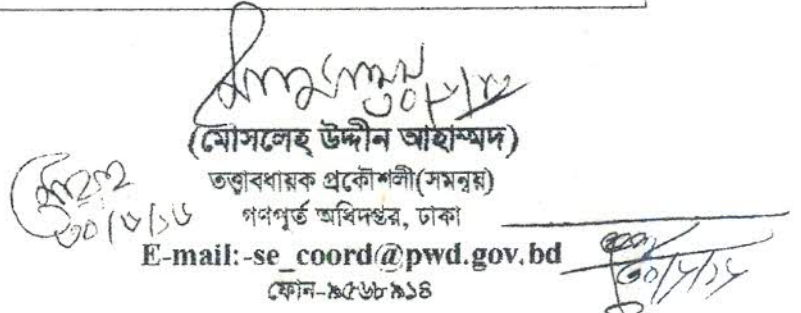 (মোসলেহ উদ্দীন আহাম্মদ)
তত্ত্বাবধায়ক প্রকৌশলী(সমন্বয়)
গণপূর্ত অধিদপ্তর, ঢাকা
E-mail:-se_coord@pwd.gov.bd
ফোন-৯৫৬৮৯১৪